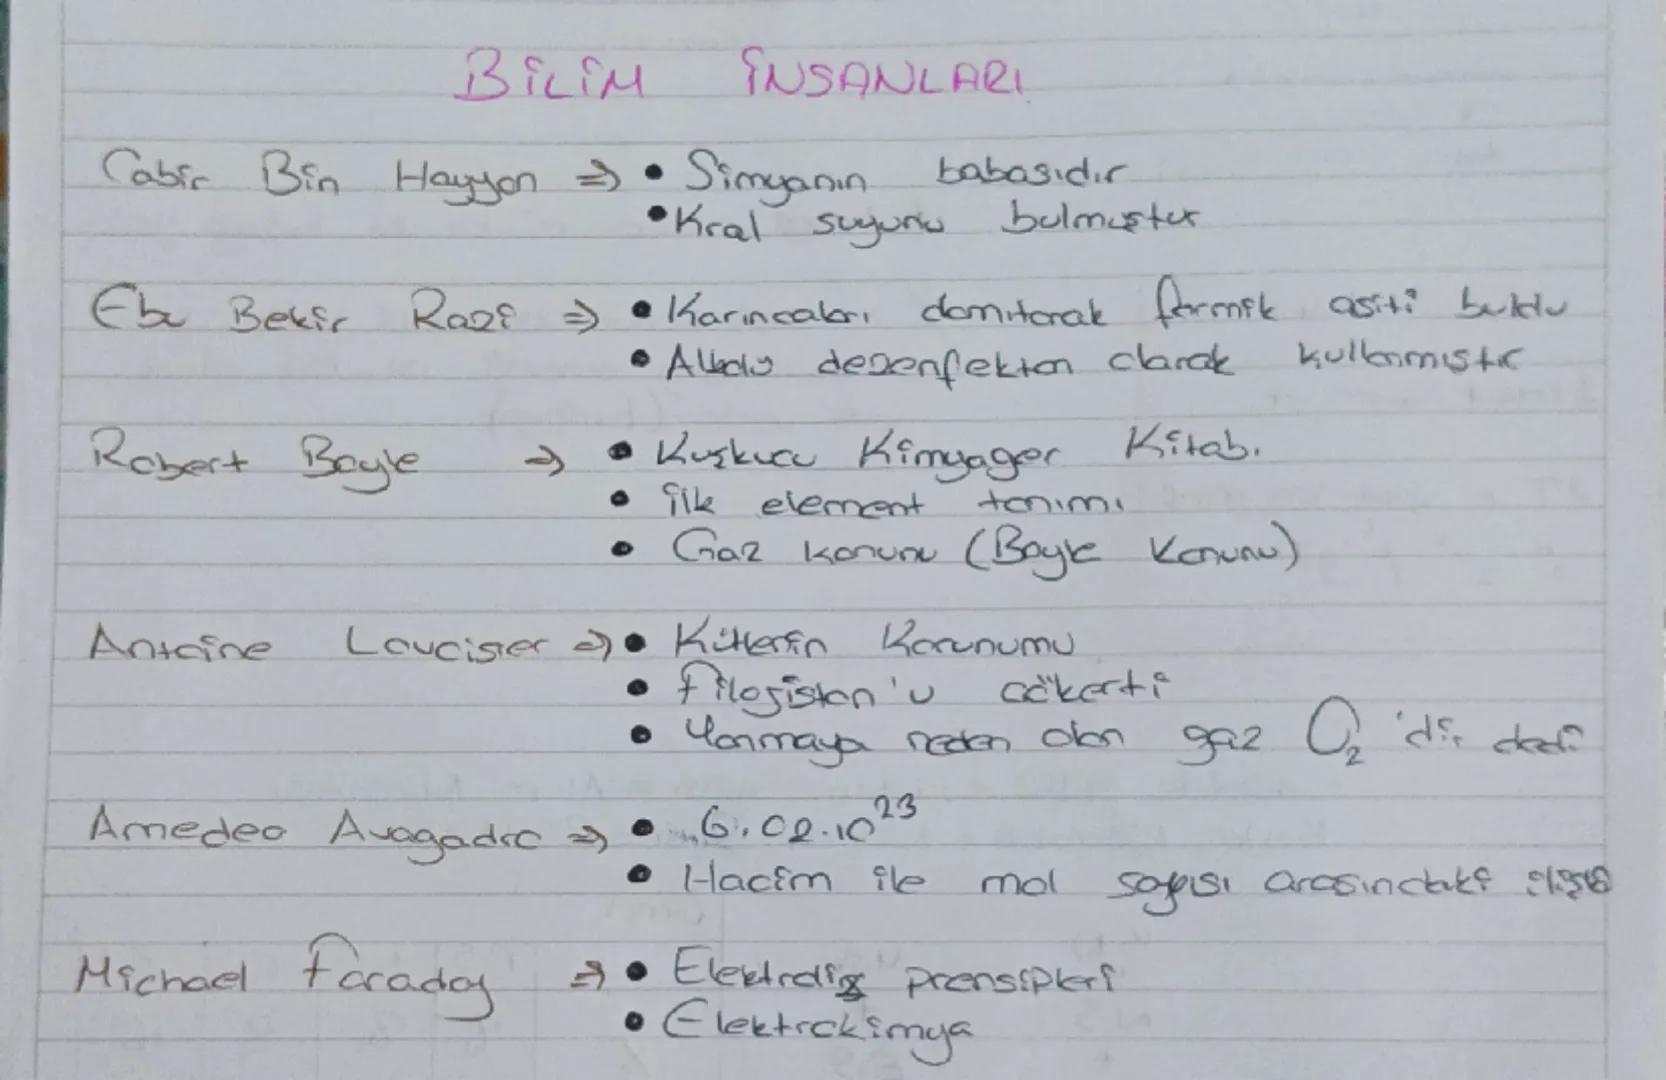 BİLİM İNSANLARI
Cabir Bin Hayyan ⇒ • Simyanın babasıdır
• Kral suyunu bulmuştur
Ebu Bekir Razi ⇒ • Karıncaları damıtarak formik asiti buldu
• Alkolü dezenfektan olarak kullanmıştır
Robert Boyle ⇒ • Kuşkucu Kimyager Kitabı
• ilk element tanımı
• Gaz kanunu (Boyle Kanunu)
Antoine Lavoisier ⇒ • Kütlenin Korunumu
• Filojiston'u çökertti
• Yanmaya neden olan gaz O₂'dir dedi
Amedeo Avagadro ⇒ • 6,02.10²³
• Hacim ile mol sayısı arasındaki ilişki
Michael Faraday ⇒ • Elektroliz prensipleri
• Elektrokimya